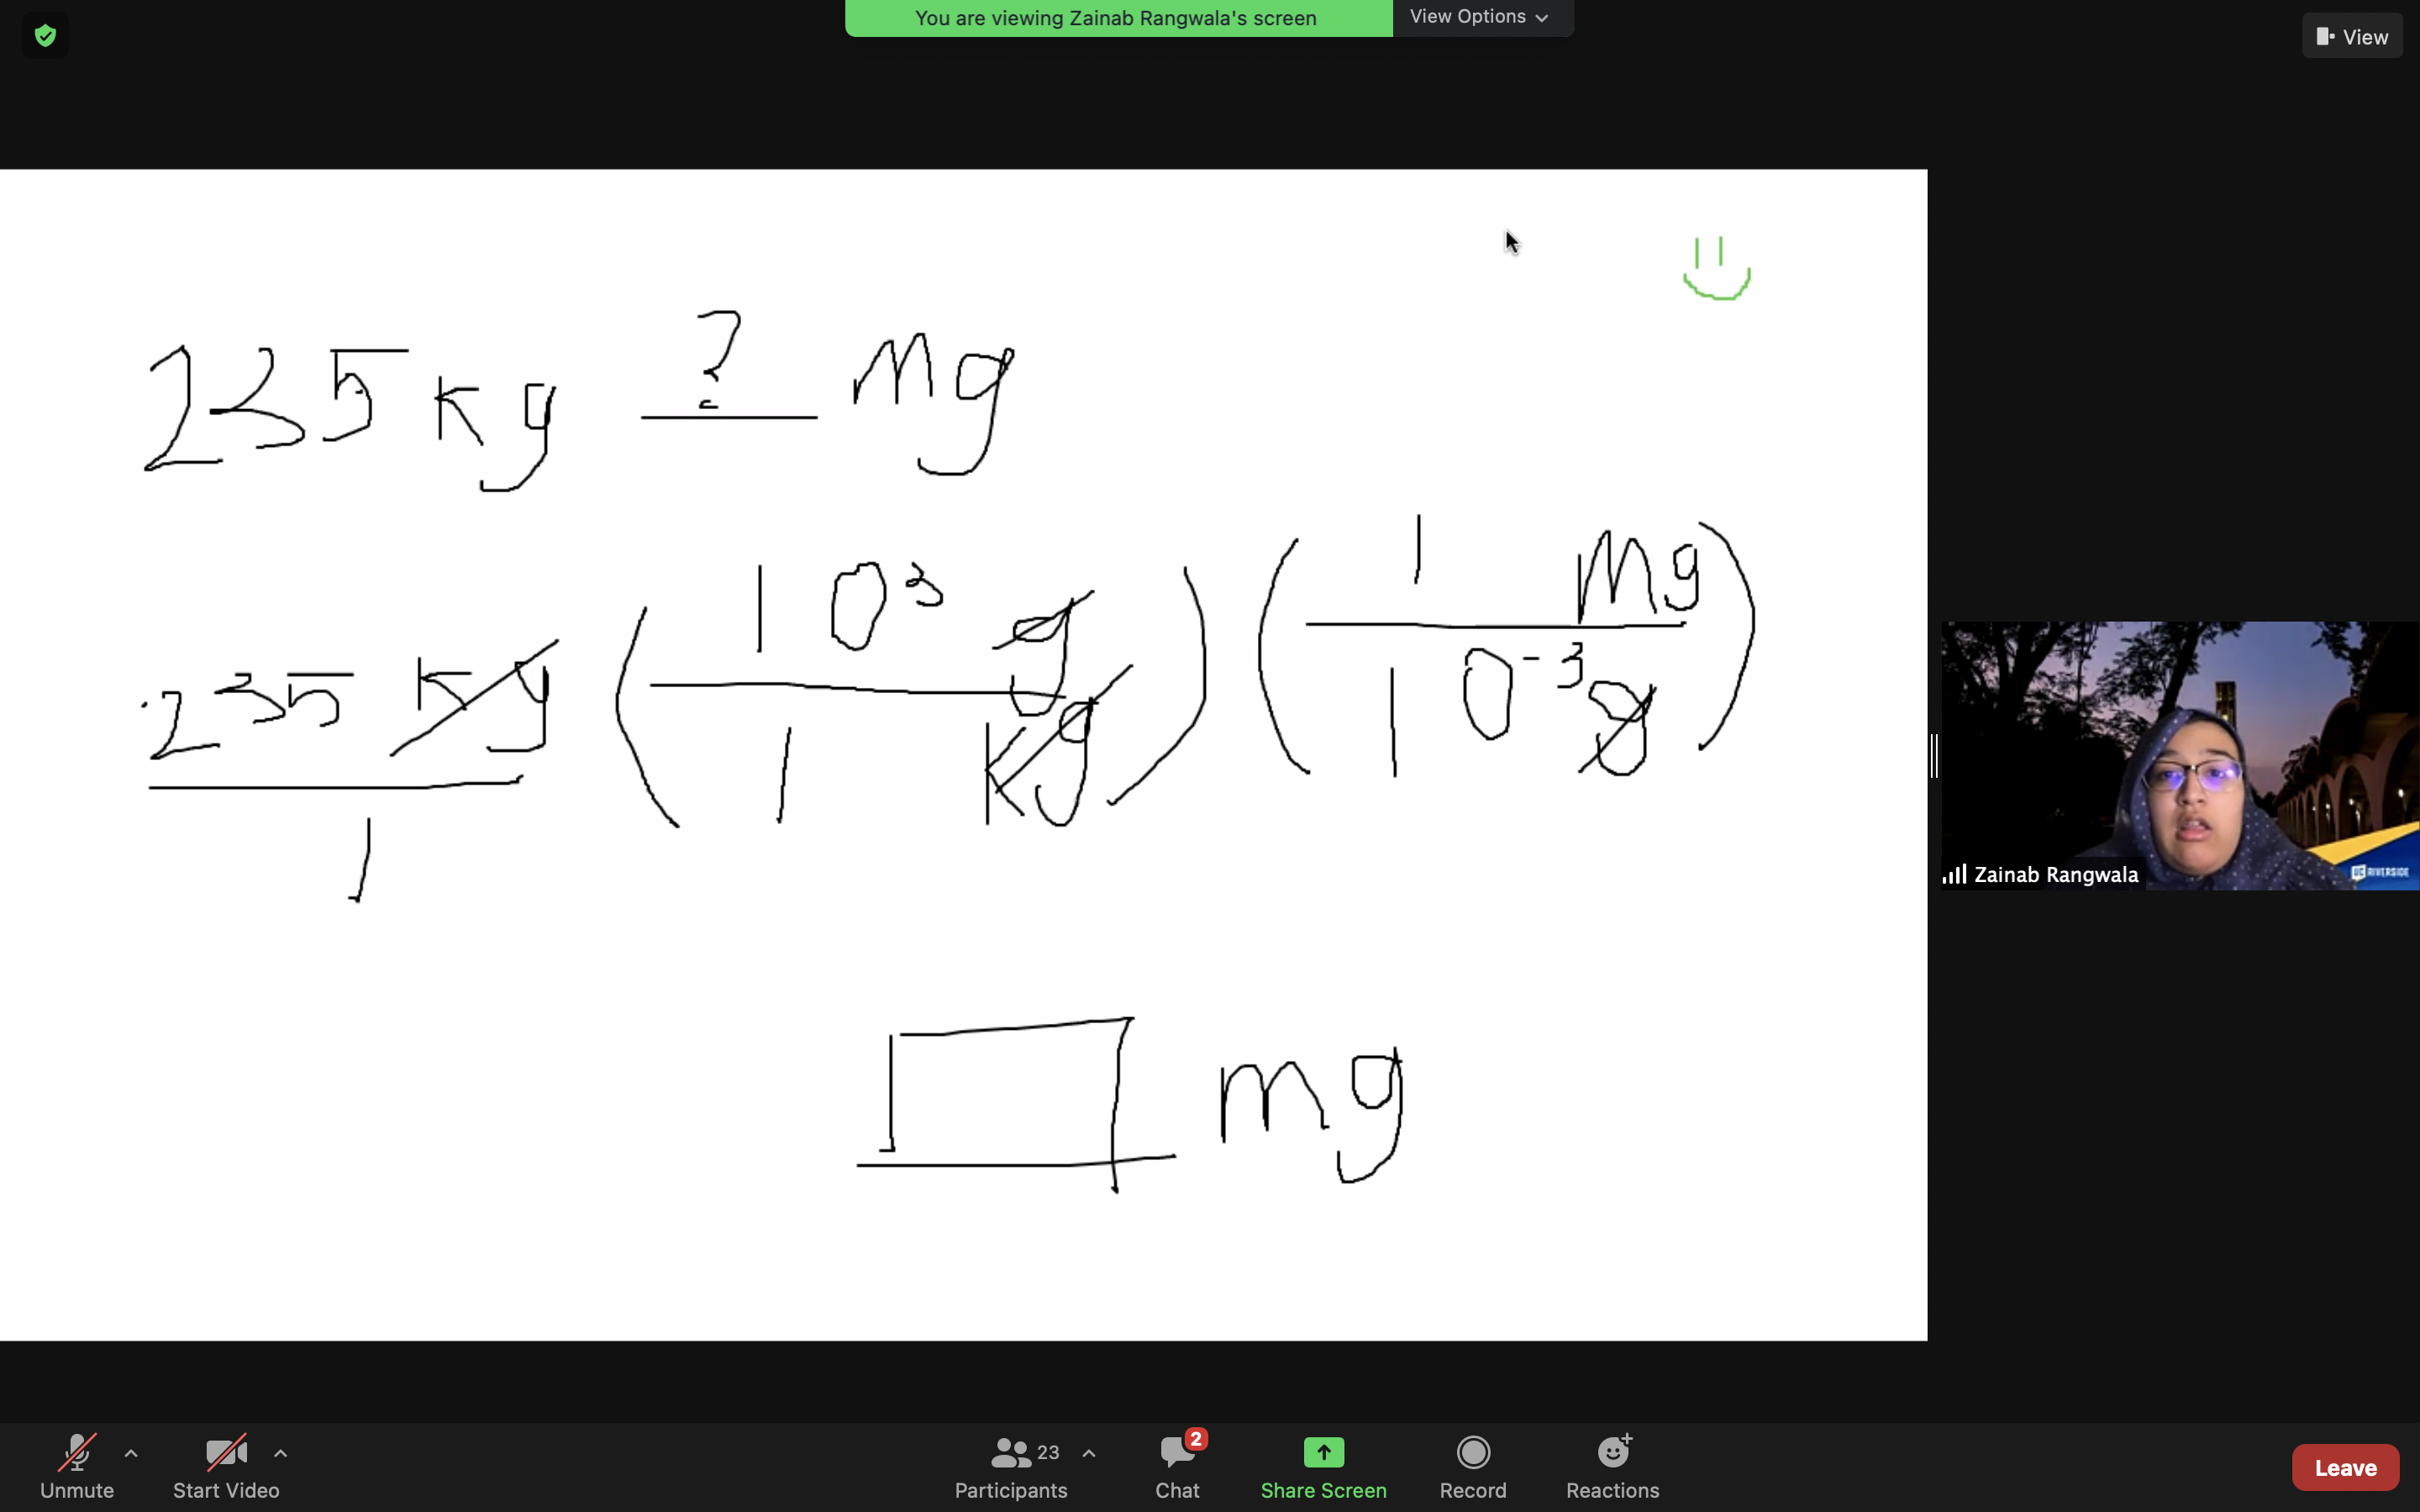 You are viewing Zainab Rangwala's screen View Options
View
235 Kg ? mg
235 Kg ( 10³ g ) ( 1 mg )
1 1 Kg 10⁻³ g
mg
Zainab Rangwala
UC RIVERSIDE
23 2
Unmute Start Video Participants Chat Share Screen Record Reactions Leave